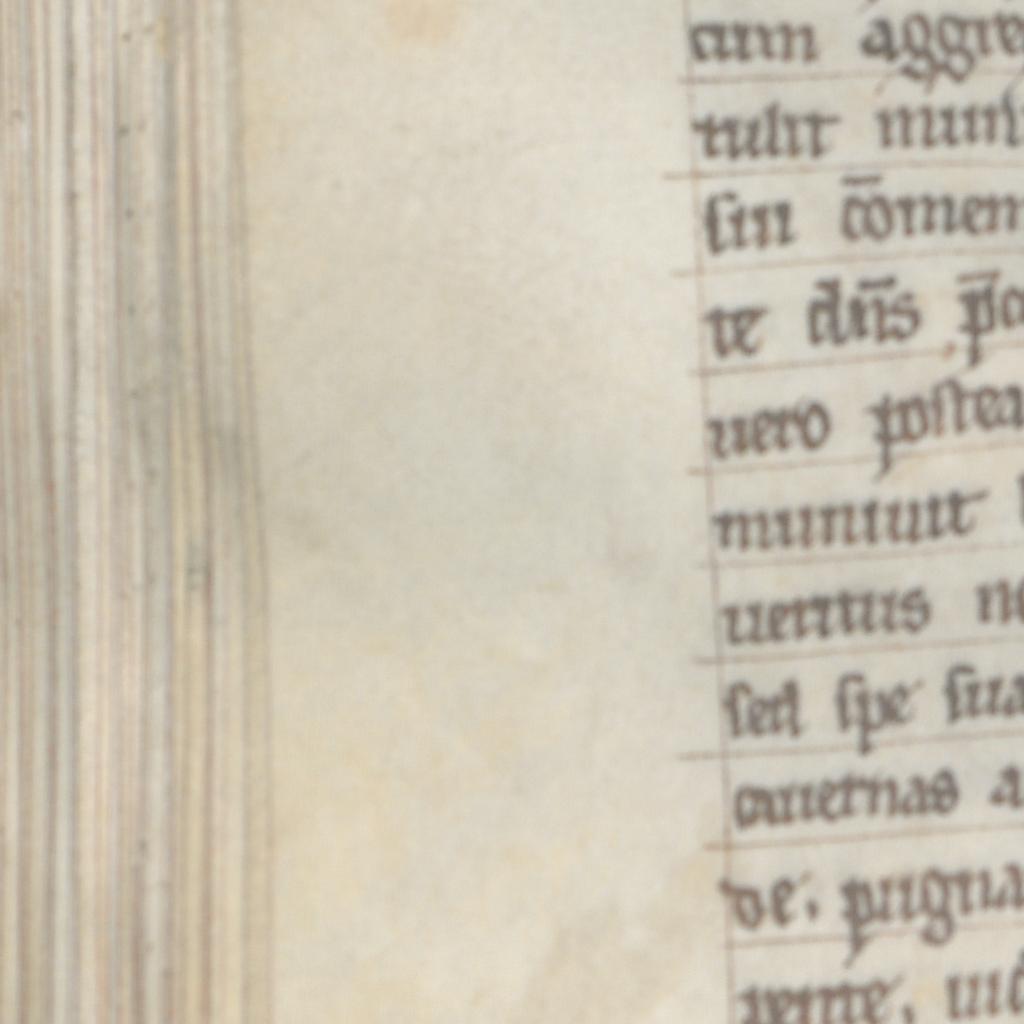 cum aggre
tulit mun
sin c̄omem
te dn̄s p̄o
uero postea
muniuit
ueritus no
sed spe sua
cauernas a
de. pugna